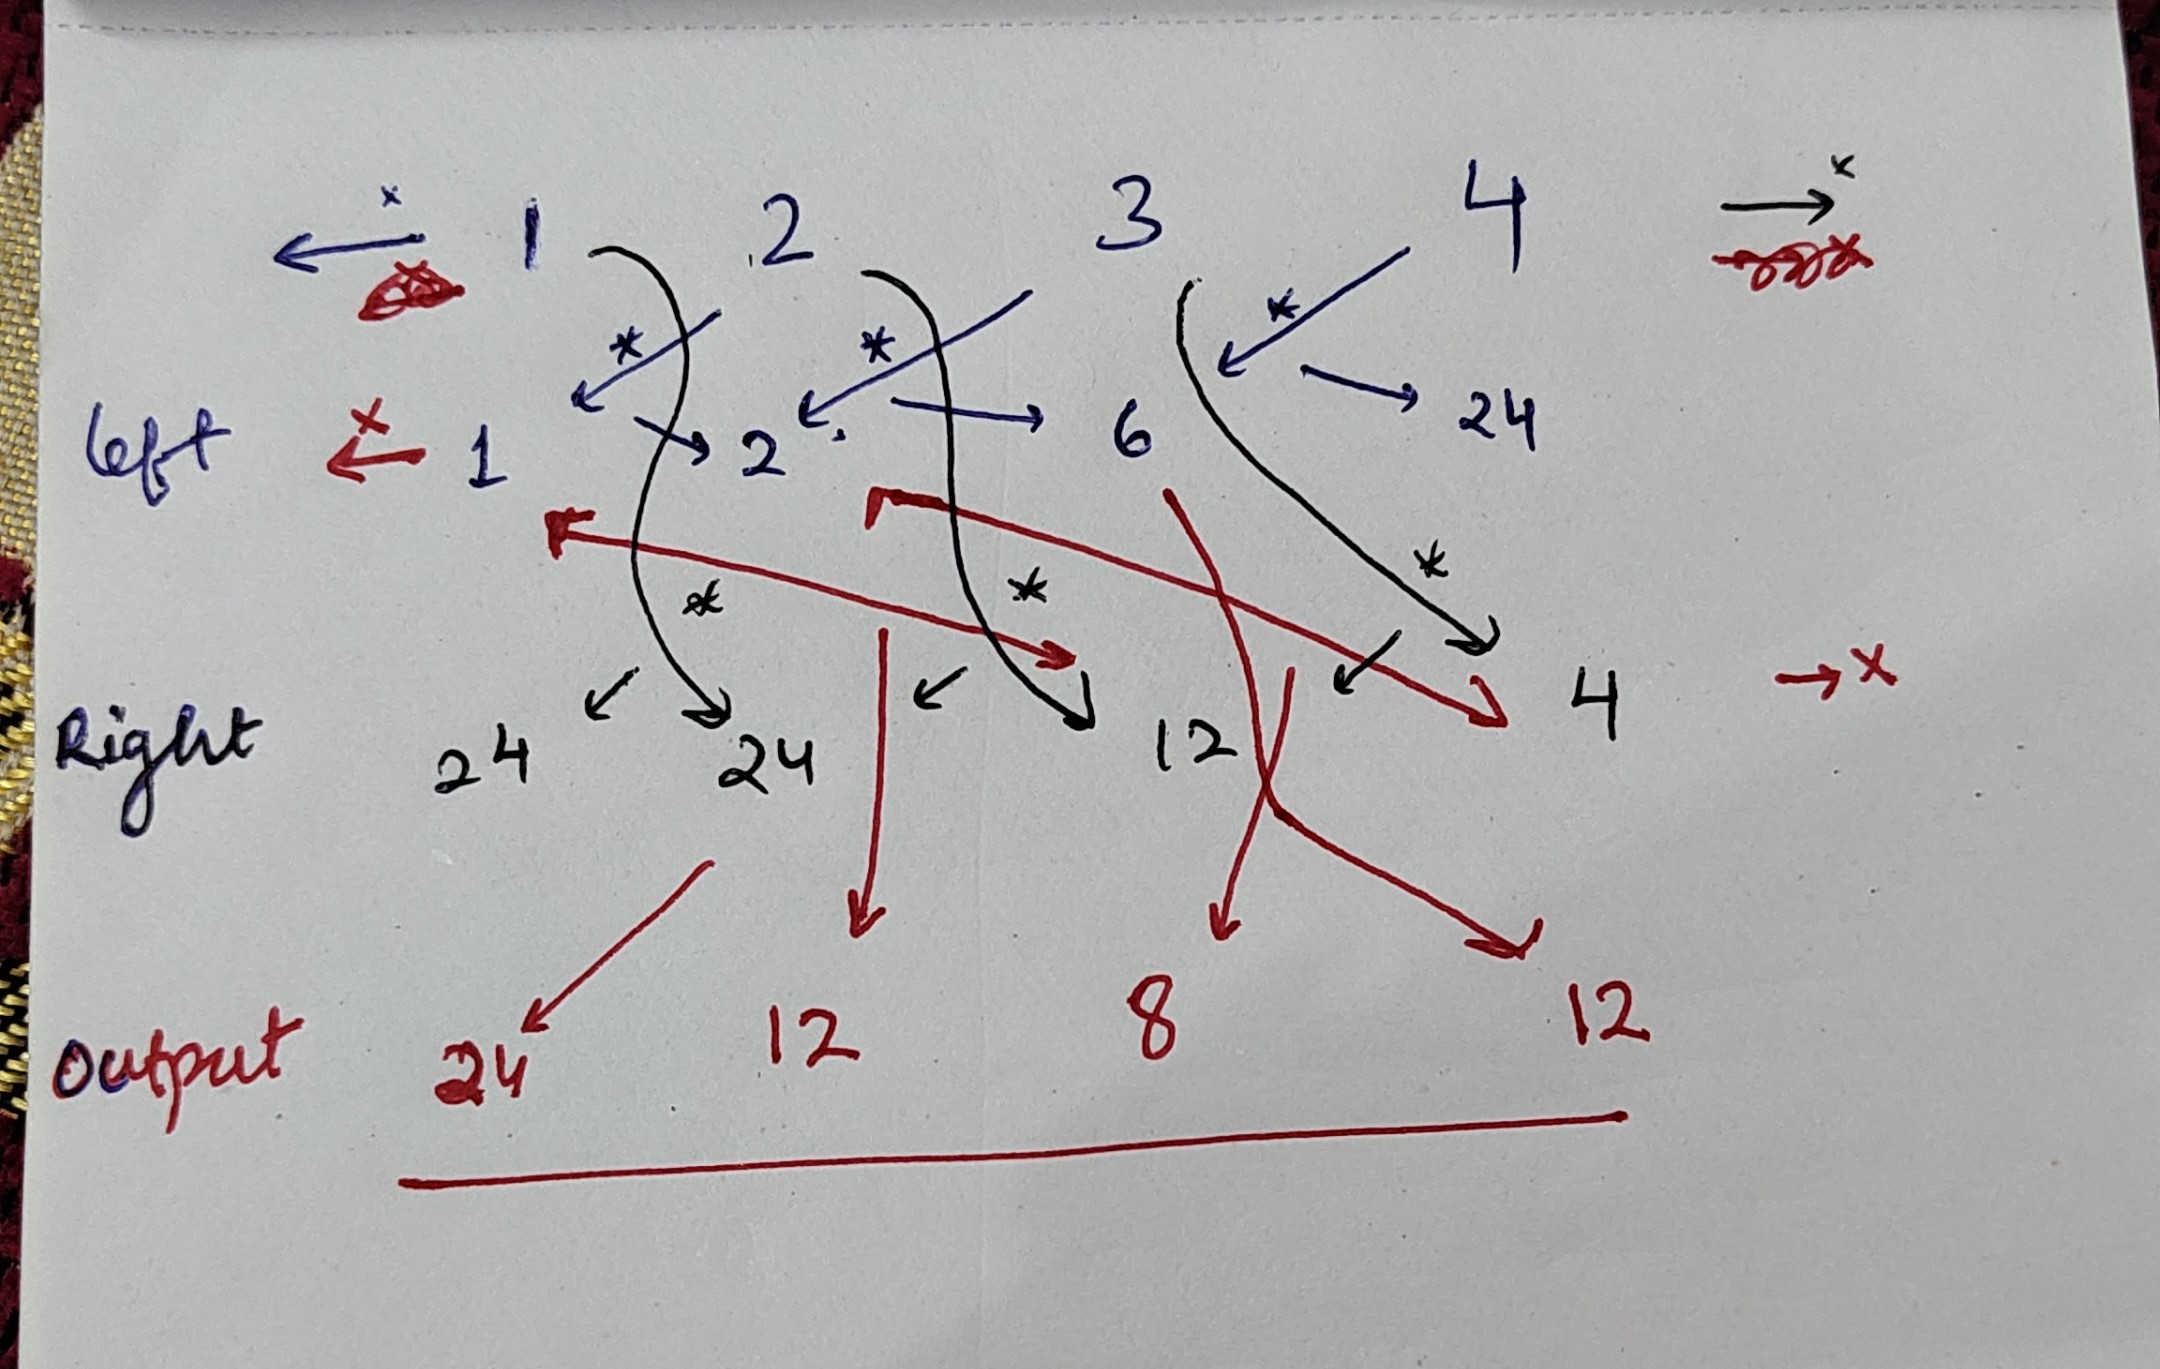 x 1 2 3 4 x
* * *
left x 1 2 6 24
* * *
Right 24 24 12 4 x
Output 24 12 8 12